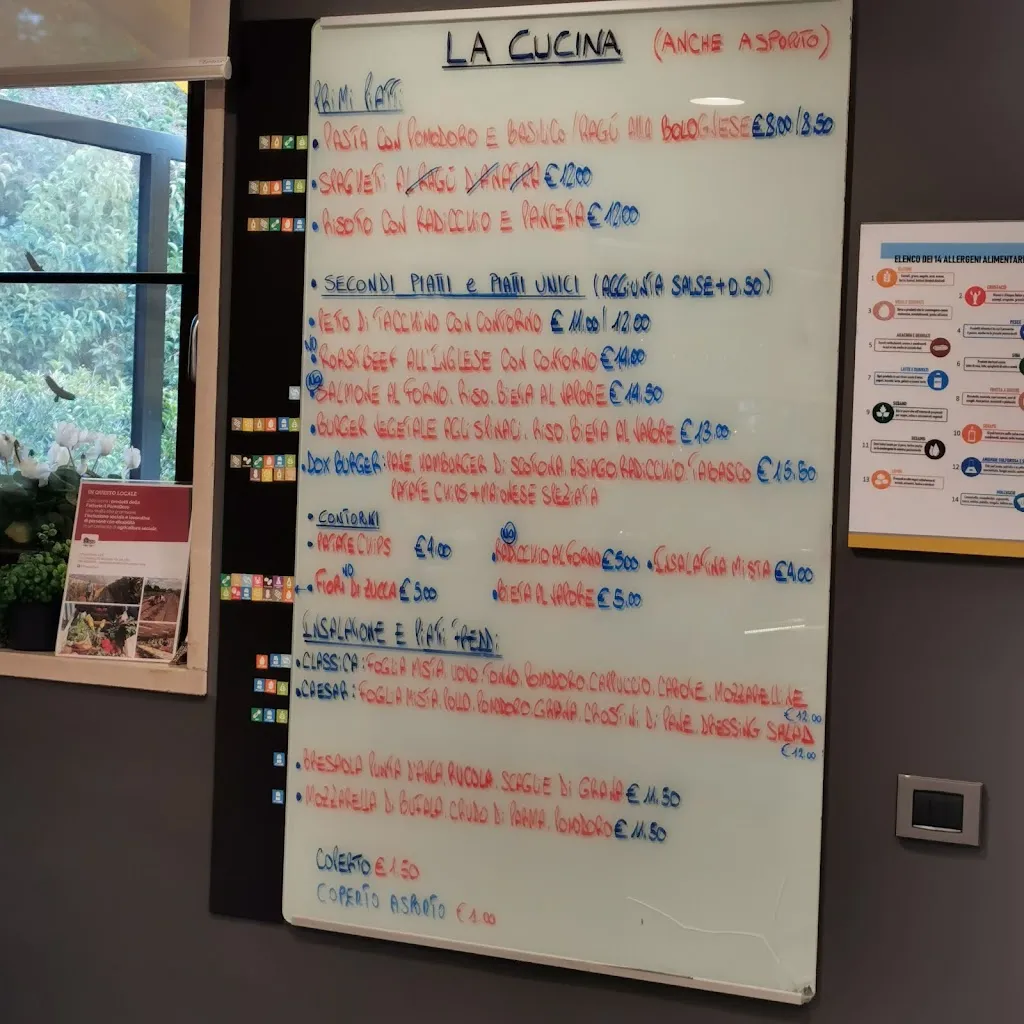 LA CUCINA (ANCHE ASPORTO)
PRIMI PIATTI
• PASTA CON POMODORO E BASILICO / RAGÙ ALLA BOLOGNESE €8,00/8,50
• SPAGHETTI AL RAGÙ D'ANATRA €12,00
• RISOTO CON RADICCHIO E PANCETTA €12,00
• SECONDI PIATTI e PIATTI UNICI (AGGIUNTA SALSE + 0,50)
• PETTO DI TACCHINO CON CONTORNO € 11,00/12,00
NO
• ROAST BEEF ALL'INGLESE CON CONTORNO €14,00
NO
• SALMONE AL FORNO, RISO, BIETA AL VAPORE €14,50
• BURGER VEGETALE AGLI SPINACI, RISO, BIETA AL VAPORE €13,00
• DOX BURGER: PANE, HAMBURGER DI SCOTTONA, ASIAGO, RADICCHIO, TABASCO €15,50
PATATE CHIPS + MAIONESE SPEZIATA
• CONTORNI
• PATATE CHIPS €4,00
NO
• RADICCHIO AL FORNO €5,00 • INSALATINA MISTA €4,00
NO
• FIORI DI ZUCCA €5,00
• BIETA AL VAPORE €5,00
INSALATONE E PIATTI FREDDI
• CLASSICA: FOGLIA MISTA, UOVO, TONNO, POMODORO, CAPPUCCIO, CAROTE, MOZZARELLINE
€12,00
• CAESAR: FOGLIA MISTA, POLLO, POMODORO, GRANA, CROSTINI DI PANE, DRESSING SALAD
€12,00
• BRESAOLA PUNTA D'ANCA, RUCOLA, SCAGLIE DI GRANA €11,50
• MOZZARELLA DI BUFALA, CRUDO DI PARMA, POMODORO €11,50
COPERTO €1,50
COPERTO ASPORTO €1,00
IN QUESTO LOCALE
ELENCO DEI 14 ALLERGENI ALIMENTARI
1
2
3
4
5
6
7
8
9
10
11
12
13
14